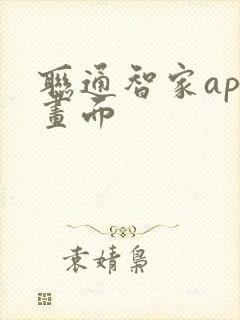 聯通智家ap
畫面
袁婧梟